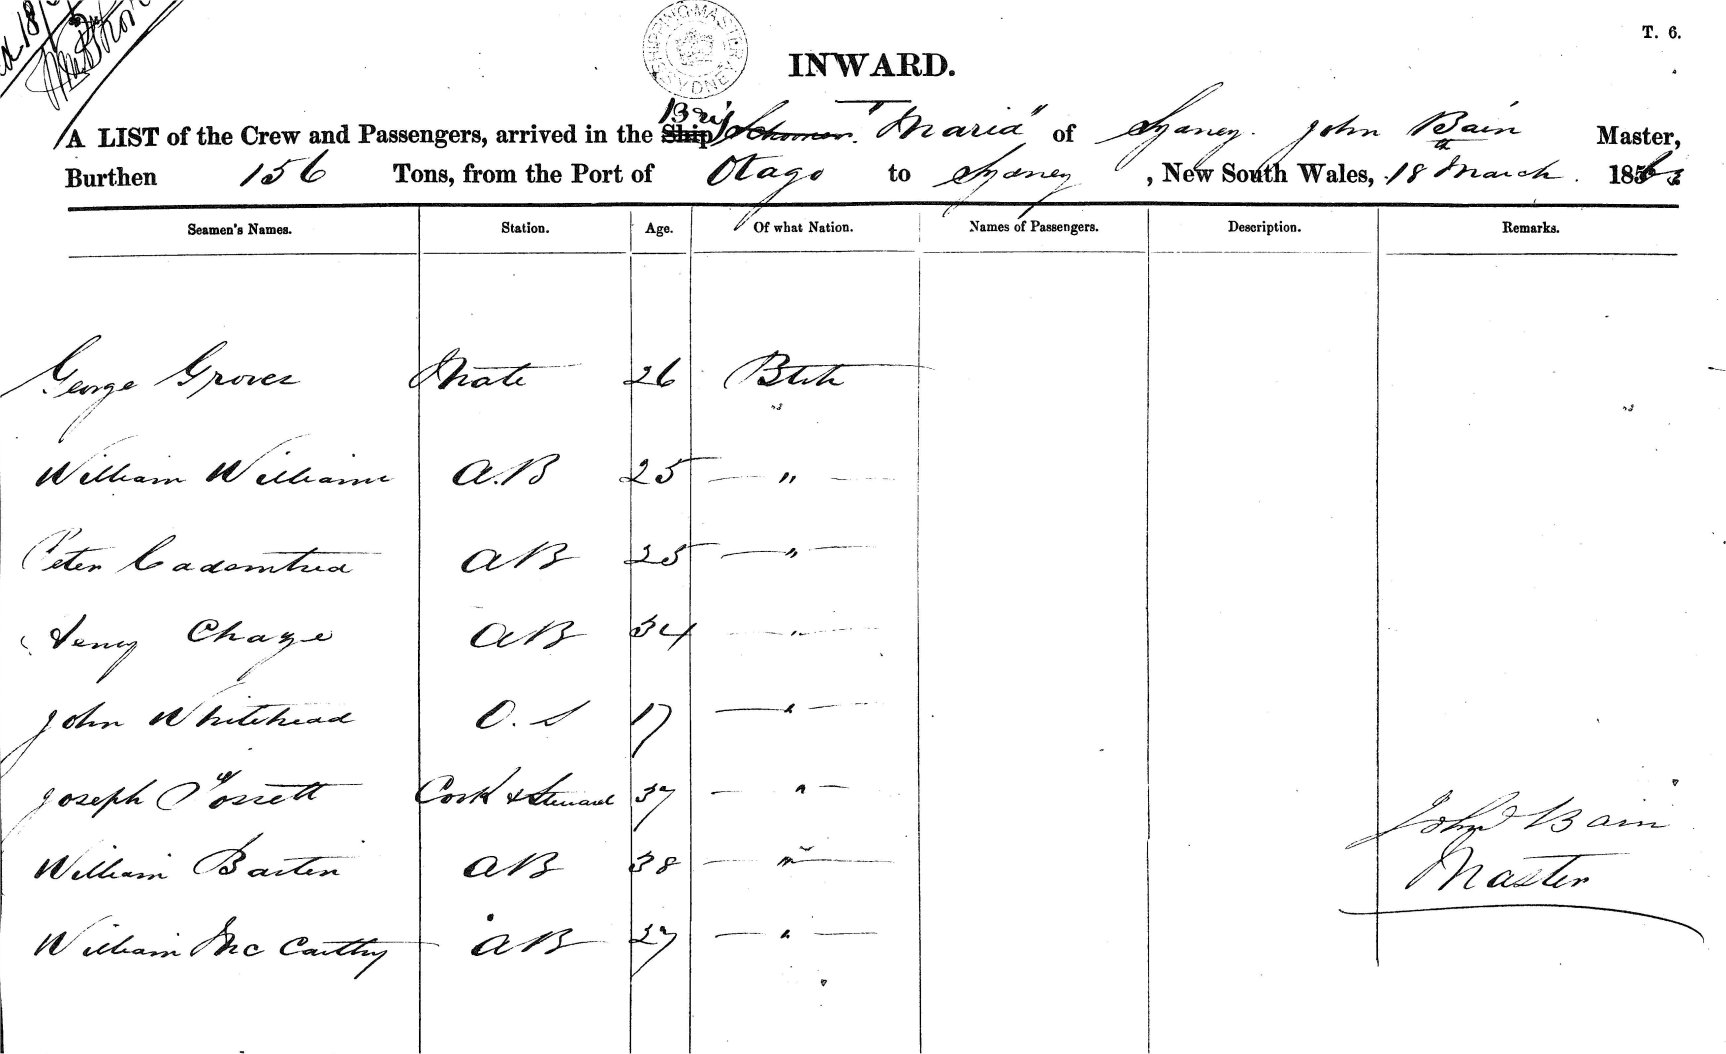 T. 6.
SHIPPING MASTER SYDNEY
INWARD.
Brig
A LIST of the Crew and Passengers, arrived in the Ship Schooner. "Maria" of Sydney. John Bain Master,
Burthen 156 Tons, from the Port of Otago to Sydney, New South Wales, 18th March. 186
Seamen's Names. Station. Age. Of what Nation. Names of Passengers. Description. Remarks.
George Grover Mate 26 Btsh
William Williams A.B 25 "
Peter AB 25 "
Henry Chaye AB 34 "
John Whitehead O.S 17 "
Joseph Cook & Steward 37 "
William AB 38 "
William McCarthy AB 27 "
John Bain
Master